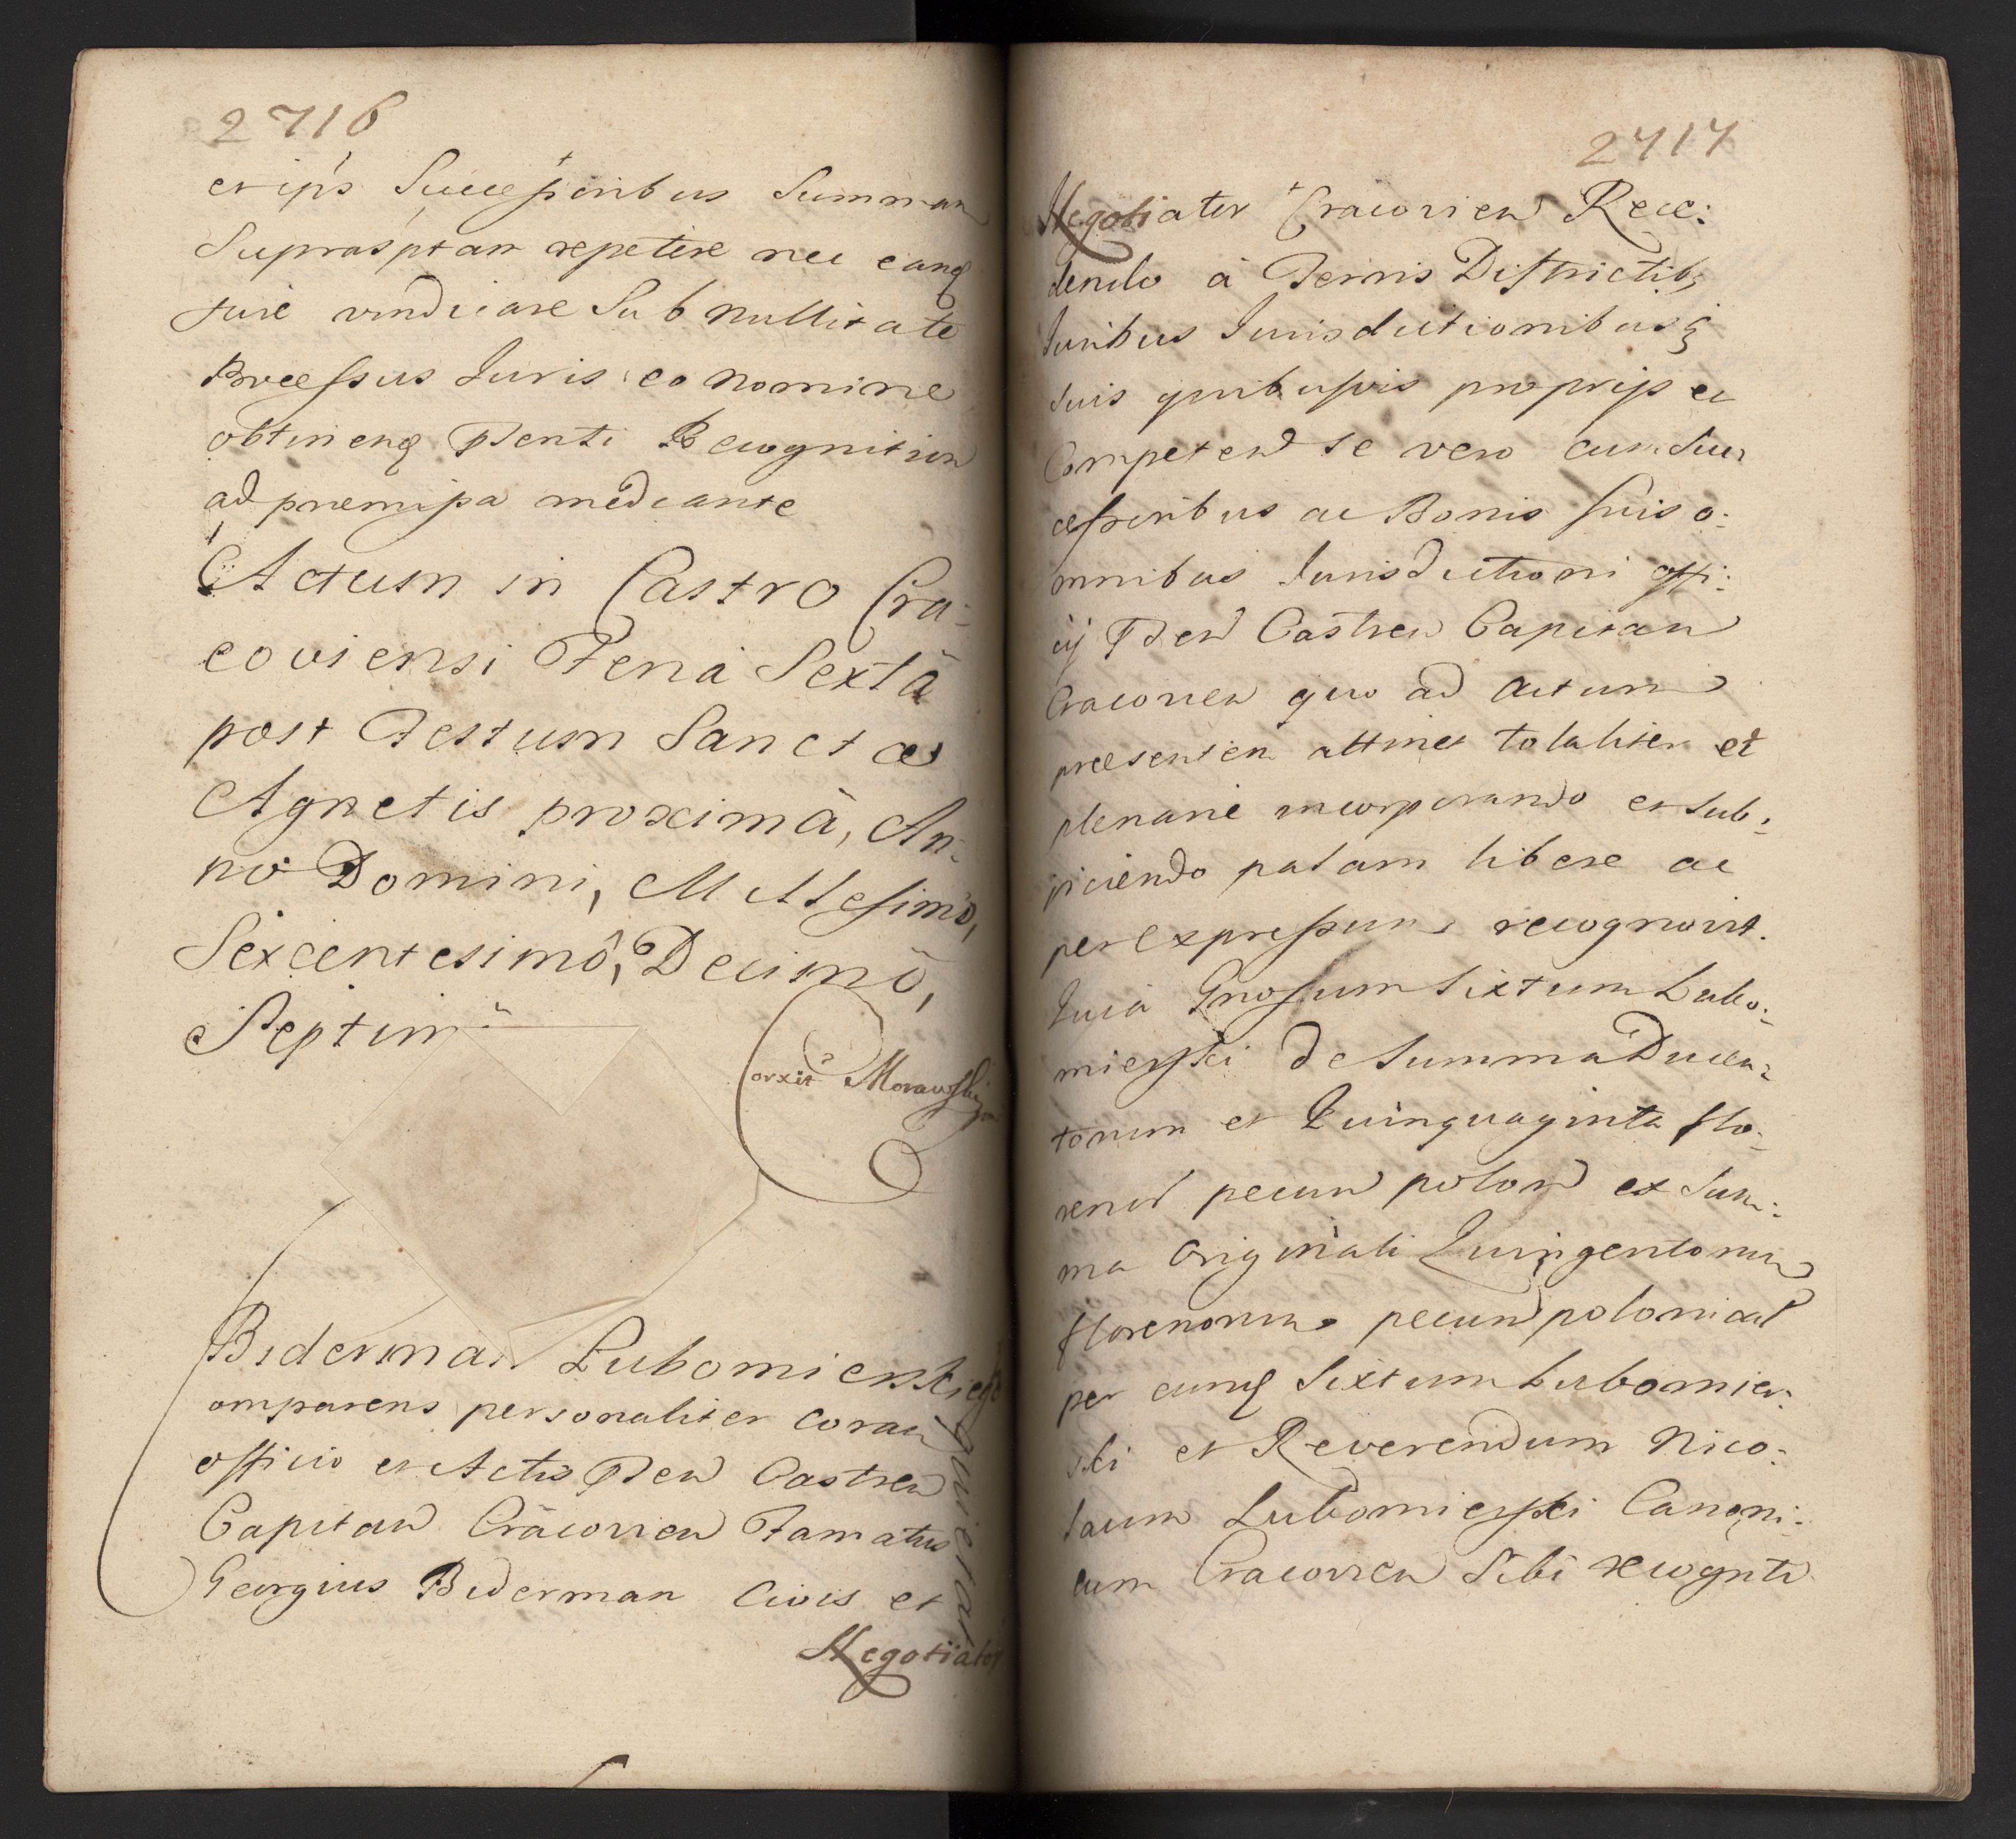 2716
et ips Successoribus Summam
Suprasptam repetere nec eang
iure vindicare Sub nullitate
Processus Iuris eo nomine
obtineng pnti Recognition
ad premissa mediante
Actum in Castro Cra-
coviensi Feriâ Sextâ
post Festum Sanctæ
Agnetis proximâ, An-
no Domini, Millesimô,
Sexcentesimô, Decimô,
Septim
orxit Morawski
Biderman Lubomierskiego
omparens personaliter coram
officio et Actis pnten Castren
Capitan Cracovien Famatus
Georgius Biderman Civis et
quietat
Negotiator
2717
Negotiator Cracovien Rece:
dendo à Terris Districtibg
Iuribus Iurisdictionibusq
suis quibusvis propriis et
Competen se vero cum Suc
cessoribus ac Bonis suis o:
mnibus Iurisdictioni offi:
cij pnten Castren Capitan
Cracovien quo ad actum
præsentem attinet totaliter et
plenarie incorporando et sub:
iiciendo palam libere ac
per expressum recognovit.
Quia Gnosum Sixtum Lubo:
mierski de Summa Ducen:
torum et Quinquaginta flo:
renor pecun polon ex Sum:
ma Originali Quingentorum
florenorum pecun polonical
per eung Sixtum Lubomier:
ski et Reverendum Nico:
laum Lubomierski Canoni:
cum Cracovien Sibi recognit